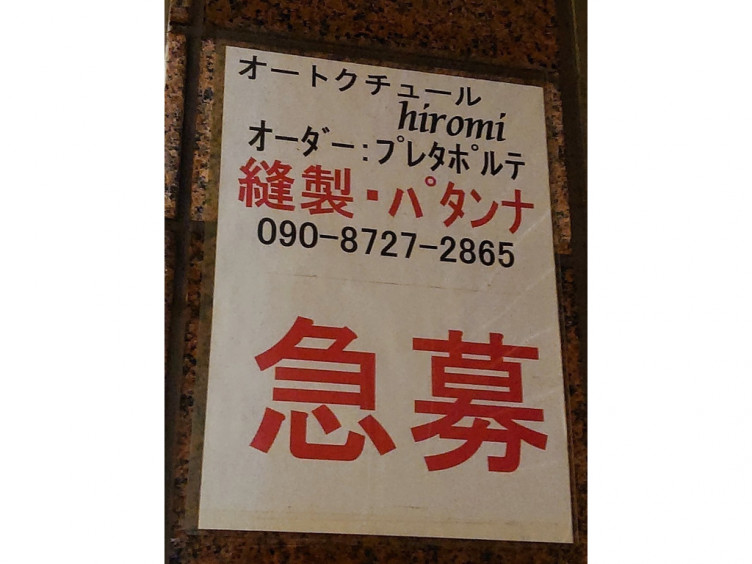 オートクチュール
hiromi
オーダー:プレタポルテ
縫製・パタンナ
090-8727-2865
急募